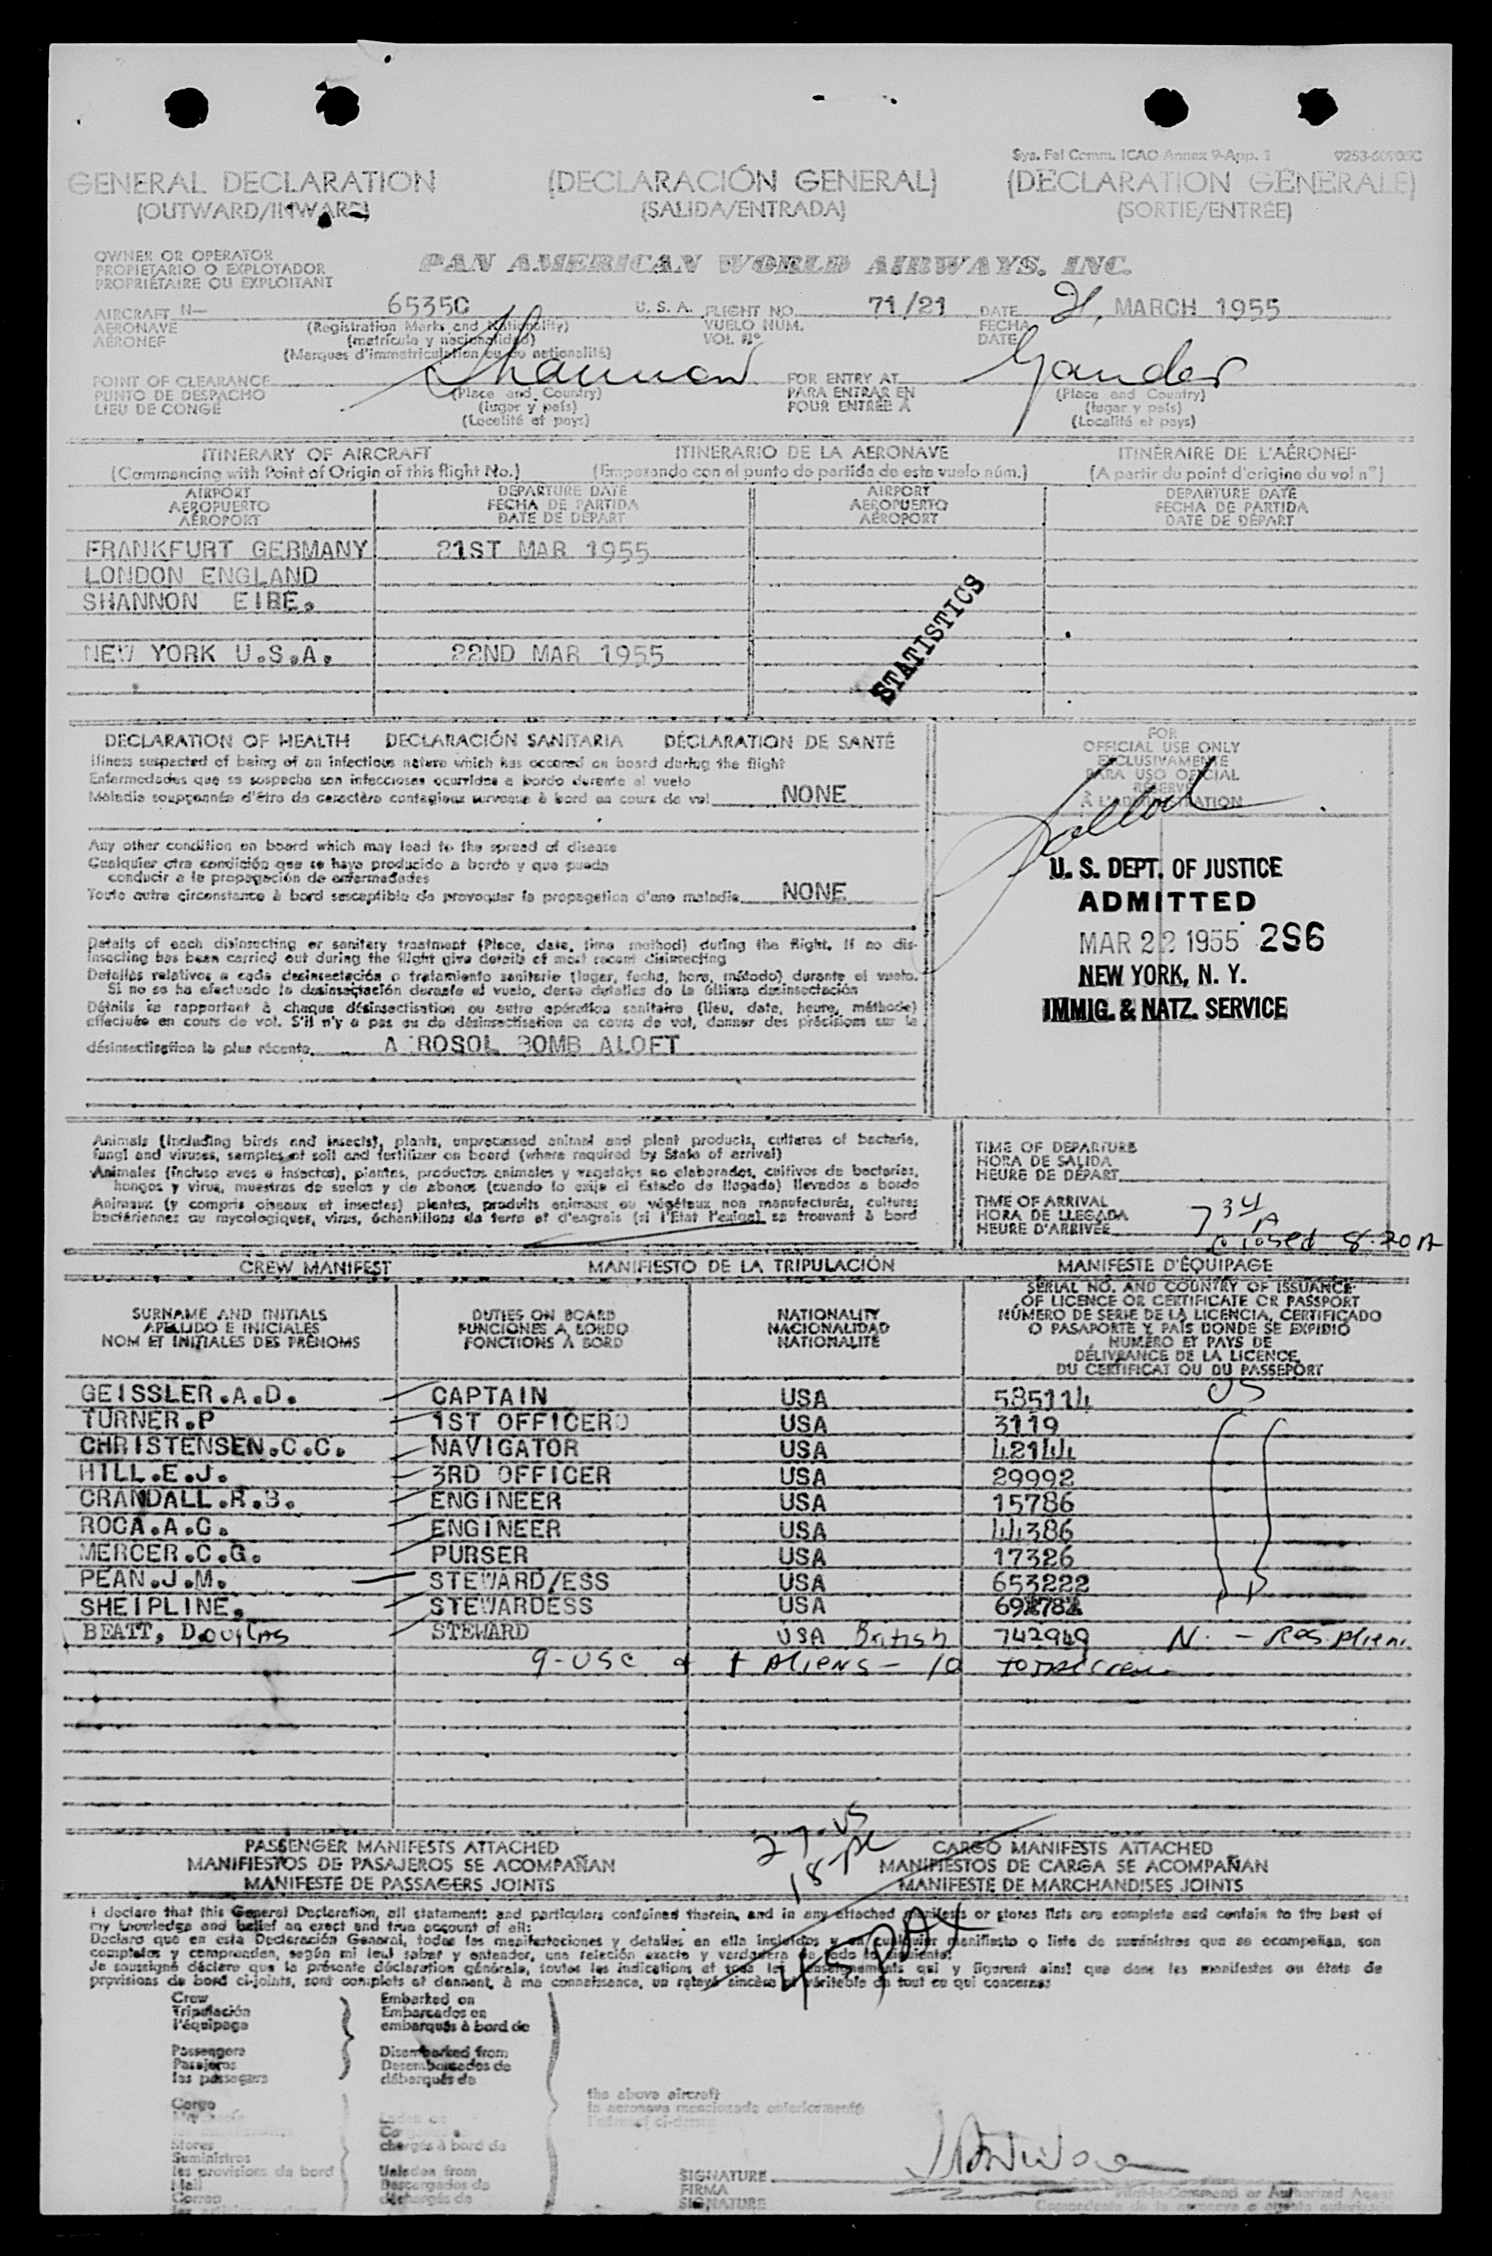 Sys. Fal Comm. ICAO Annex 9-App. 1
GENERAL DECLARATION (DECLARACIÓN GENERAL) (DECLARATION GENERALE)
(OUTWARD/INWARD) (SALIDA/ENTRADA) (SORTIE/ENTRÉE)
OWNER OR OPERATOR
PROPIETARIO O EXPLOTADOR PAN AMERICAN WORLD AIRWAYS, INC.
PROPRIÉTAIRE OU EXPLOITANT
AIRCRAFT N— 6535C U. S. A. FLIGHT NO. 71/21 DATE 21, MARCH 1955
AERONAVE (Registration Marks and Nationality) VUELO NUM. FECHA
AÉRONEF (matrícula y nacionalidad) VOL Nº DATE
(Marques d'immatriculation ou de nationalité)
POINT OF CLEARANCE Shannon FOR ENTRY AT Gander
PUNTO DE DESPACHO (Place and Country) PARA ENTRAR EN (Place and Country)
LIEU DE CONGÉ (lugar y país) POUR ENTRÉE A (lugar y país)
(Localité et pays) (Localité et pays)
ITINERARY OF AIRCRAFT ITINERARIO DE LA AERONAVE ITINÉRAIRE DE L'AÉRONEF
(Commencing with Point of Origin of this flight No.) (Empezando con el punto de partida de este vuelo núm.) (A partir du point d'origine du vol nº)
AIRPORT DEPARTURE DATE AIRPORT DEPARTURE DATE
AEROPUERTO FECHA DE PARTIDA AEROPUERTO FECHA DE PARTIDA
AÉROPORT DATE DE DÉPART AÉROPORT DATE DE DÉPART
FRANKFURT GERMANY 21ST MAR 1955
LONDON ENGLAND
SHANNON EIRE.
NEW YORK U.S.A. 22ND MAR 1955
STATISTICS
DECLARATION OF HEALTH DECLARACIÓN SANITARIA DÉCLARATION DE SANTÉ
Illness suspected of being of an infectious nature which has occured on board during the flight
Enfermedades que se sospecha son infecciosas ocurridas a bordo durante el vuelo
Maladie soupçonnée d'être de caractère contagieux survenue à bord au cours de vol NONE
Any other condition on board which may lead to the spread of disease
Cualquier otra condición que se haya producido a bordo y que pueda
conducir a la propagación de enfermedades
Toute autre circonstance à bord susceptible de provoquer la propagation d'une maladie NONE
Details of each disinsecting or sanitary treatment (Place, date, time method) during the flight. If no dis-
insecting has been carried out during the flight give details of most recent disinsecting
Detalles relativos a cada desinsectación o tratamiento sanitario (lugar, fecha, hora, método) durante el vuelo.
Si no se ha efectuado la desinsectación durante el vuelo, dense detalles de la última desinsectación
Détails se rapportant à chaque désinsectisation ou autre opération sanitaire (lieu, date, heure, méthode)
effectuée en cours de vol. S'il n'y a pas eu de désinsectisation en cours de vol, donner des précisions sur la
désinsectisation la plus récente. A ROSOL BOMB ALOFT
FOR
OFFICIAL USE ONLY
EXCLUSIVAMENTE
PARA USO OFICIAL
RÉSERVÉ
À L'ADMINISTRATION
U. S. DEPT. OF JUSTICE
ADMITTED
MAR 22 1955 286
NEW YORK, N. Y.
IMMIG. & NATZ. SERVICE
Animals (including birds and insects), plants, unprocessed animal and plant products, cultures of bacteria,
fungi and viruses, samples of soil and fertilizer on board (where required by State of arrival)
Animales (incluso aves e insectos), plantas, productos animales y vegetales no elaborados, cultivos de bacterias,
hongos y virus, muestras de suelos y de abonos (cuando lo exija el Estado de llegada) llevados a bordo
Animaux (y compris oiseaux et insectes) plantes, produits animaux ou végétaux non manufacturés, cultures
bactériennes ou mycologiques, virus, échantillons de terre et d'engrais (si l'Etat l'exige) se trouvant à bord
TIME OF DEPARTURE
HORA DE SALIDA
HEURE DE DÉPART
TIME OF ARRIVAL
HORA DE LLEGADA
HEURE D'ARRIVÉE 7 34 A
closed 8-20 A
CREW MANIFEST MANIFIESTO DE LA TRIPULACIÓN MANIFESTE D'ÉQUIPAGE
SURNAME AND INITIALS DUTIES ON BOARD NATIONALITY SERIAL NO. AND COUNTRY OF ISSUANCE
APELLIDO E INICIALES FUNCIONES A BORDO NACIONALIDAD OF LICENCE OR CERTIFICATE OR PASSPORT
NOM ET INITIALES DES PRÉNOMS FONCTIONS À BORD NATIONALITÉ NÚMERO DE SERIE DE LA LICENCIA, CERTIFICADO
O PASAPORTE Y PAÍS DONDE SE EXPIDIÓ
NUMÉRO ET PAYS DE
DÉLIVRANCE DE LA LICENCE,
DU CERTIFICAT OU DU PASSEPORT
GEISSLER.A.D. CAPTAIN USA 585114 US
TURNER.P 1ST OFFICER USA 3119
CHRISTENSEN.C.C. NAVIGATOR USA 42144
HILL.E.J. 3RD OFFICER USA 29992
CRANDALL.R.B. ENGINEER USA 15786
ROCA.A.C. ENGINEER USA 44386
MERCER.C.G. PURSER USA 17326
PEAN.J.M. STEWARD/ESS USA 653222
SHEIPLINE. STEWARDESS USA
BEATT, Douglas STEWARD USA British 742949 N. - Res Alien.
9-USC + Aliens - 10 Total crew
27-US
PASSENGER MANIFESTS ATTACHED CARGO MANIFESTS ATTACHED
MANIFIESTOS DE PASAJEROS SE ACOMPAÑAN MANIFIESTOS DE CARGA SE ACOMPAÑAN
MANIFESTE DE PASSAGERS JOINTS MANIFESTE DE MARCHANDISES JOINTS
45 PAX
I declare that this General Declaration, all statements and particulars contained therein, and in any attached manifests or stores lists are complete and contain to the best of
my knowledge and belief an exact and true account of all:
Declaro que en esta Declaración General, todas las manifestaciones y detalles en ella incluidos y en cualquier manifiesto o lista de suministros que se acompañan, son
completos y comprenden, según mi leal saber y entender, una relación exacta y verdadera de todo lo siguiente:
Je soussigné déclare que la présente déclaration générale, toutes les indications et tous les renseignements qui y figurent ainsi que dans les manifestes ou états de
provisions de bord ci-joints, sont complets et donnent, à ma connaissance, un relevé sincère et véritable de tout ce qui concerne:
Crew Embarked on
Tripulación Embarcados en
l'équipage embarqués à bord de
Passengers Disembarked from
Pasajeros Desembarcados de
les passagers débarqués de
the above aircraft
la aeronave mencionada anteriormente
Cargo
Stores chargés à bord de
Suministros
les provisions de bord Unladen from
Mail Descargados de
Correo déchargés de
SIGNATURE
FIRMA
SIGNATURE